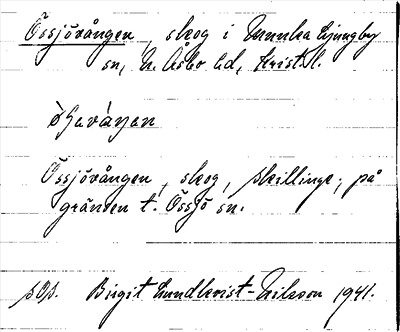 Össjövången, skog i Munka Ljungby
sn, N. Åsbo hd, Krist. l.
Össjövången, skog, Skillinge; på
gränsen t. Össjö sn.
Birgit Lundkvist-Nilsson 1941.